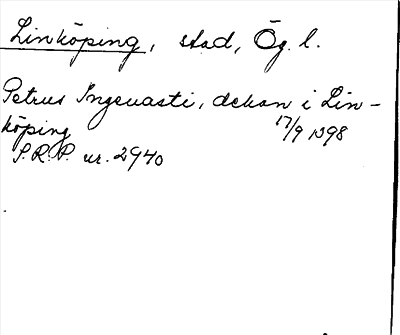 Linköping, stad, Ög. l.
Petrus Ingevasti, dekan i Lin-
köping 17/9 1398
S.R.P. nr. 2940